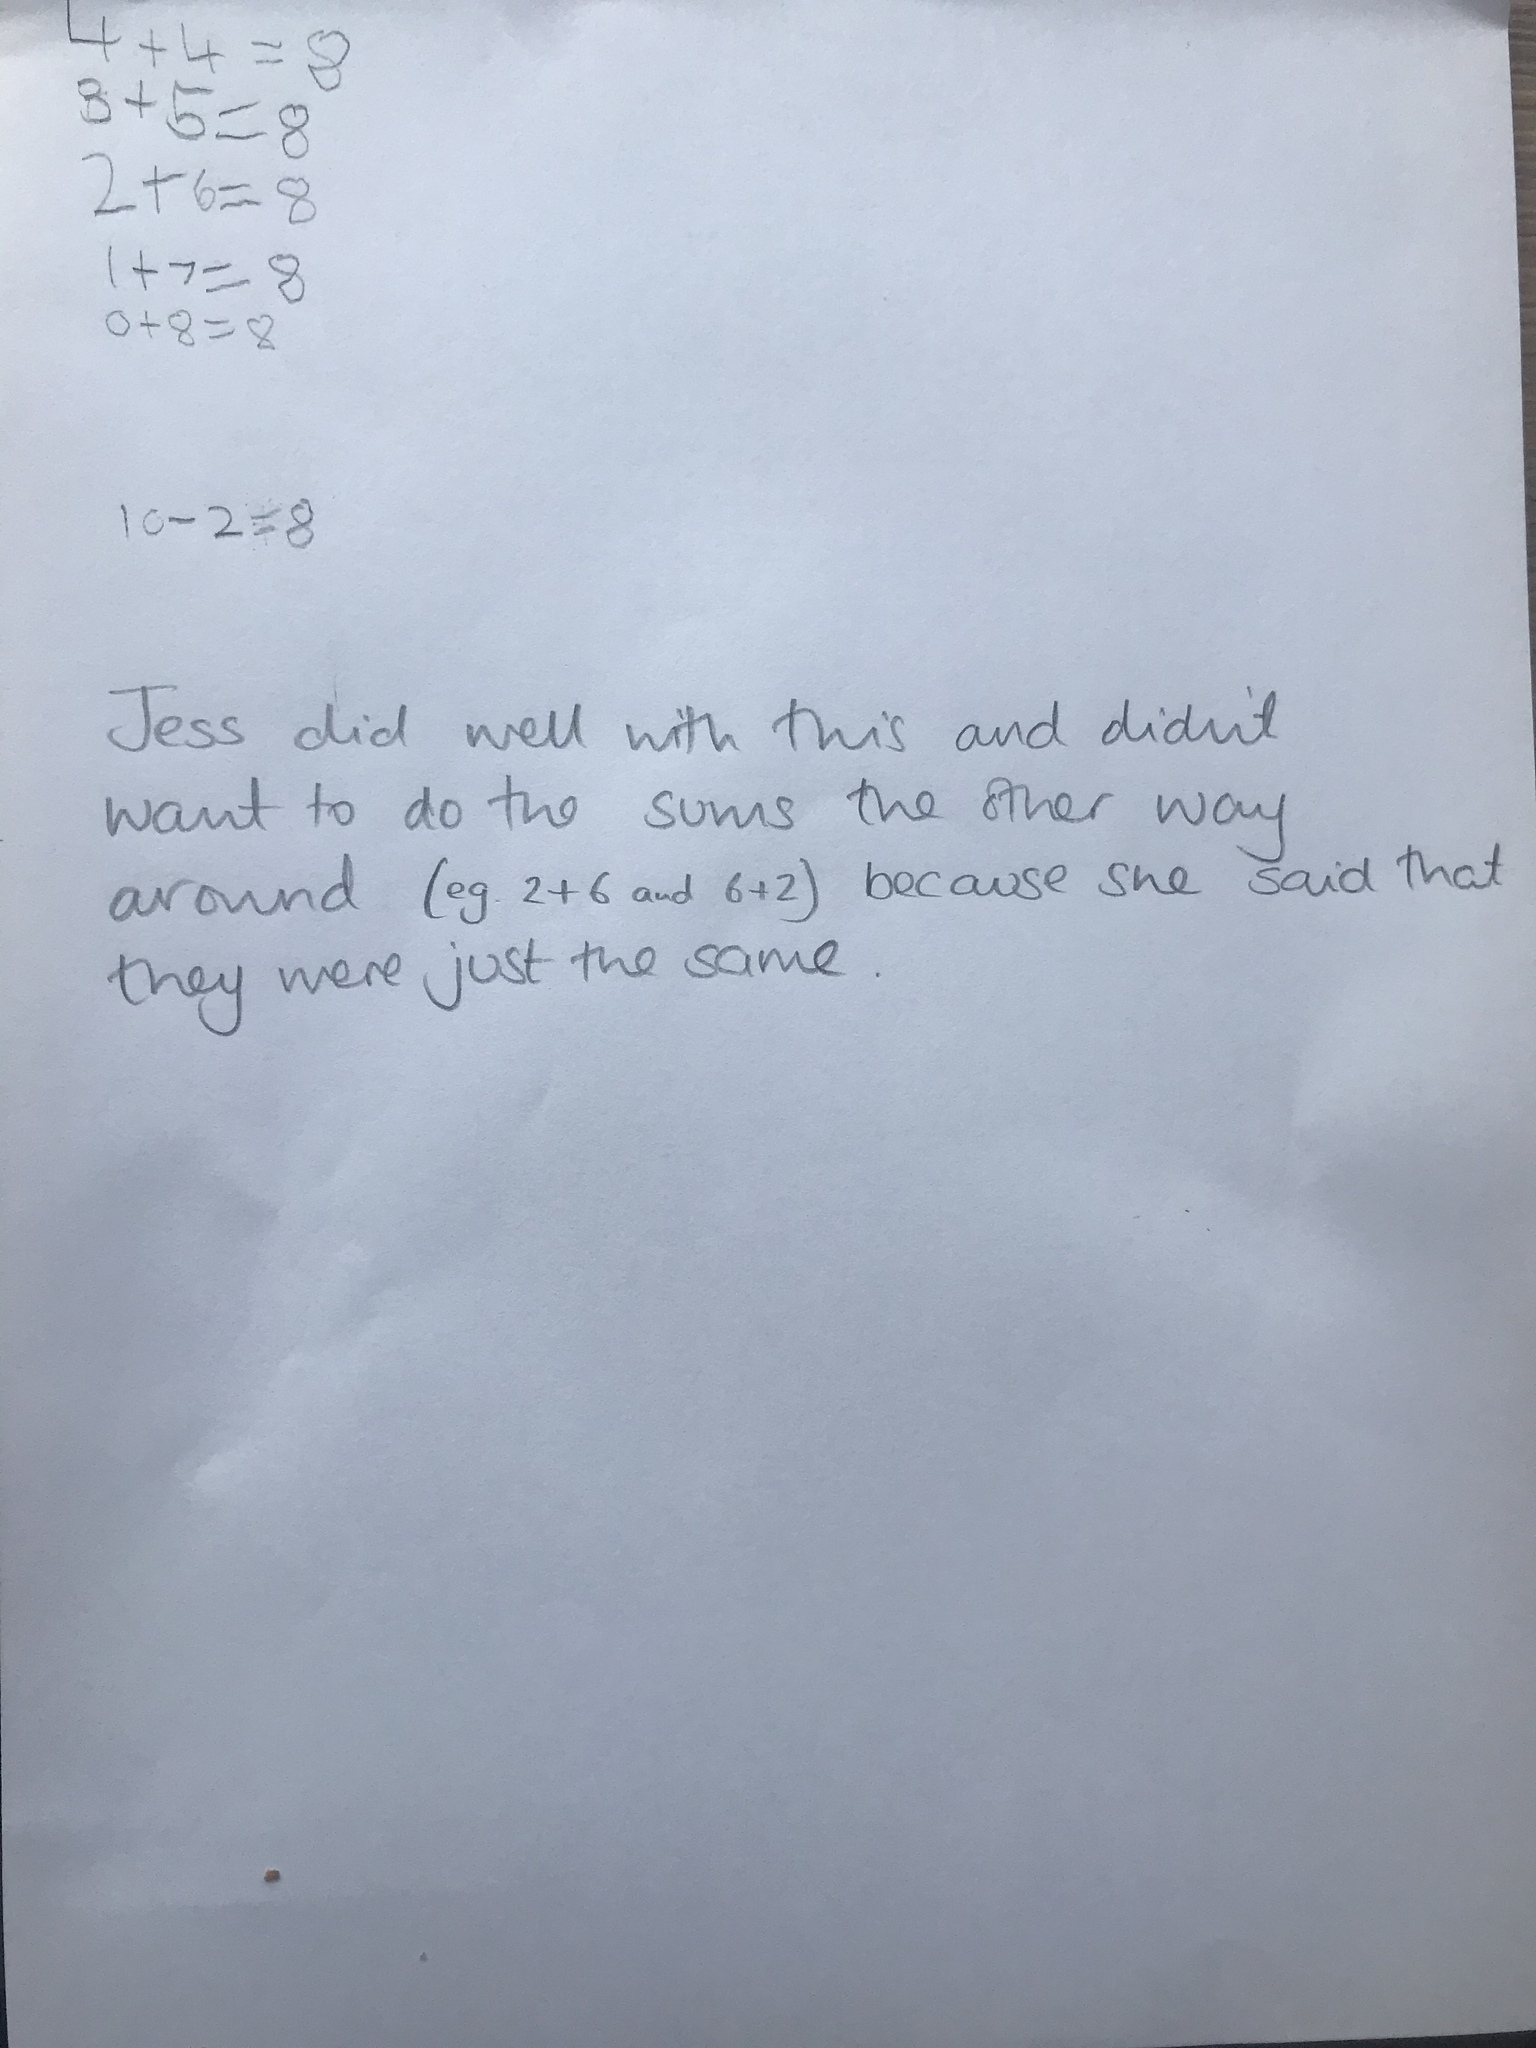 4+4=8
3+5=8
2+6=8
1+7=8
0+8=8
10-2=8
Jess did well with this and didn't
want to do the sums the other way
around (eg. 2+6 and 6+2) because she said that
they were just the same.